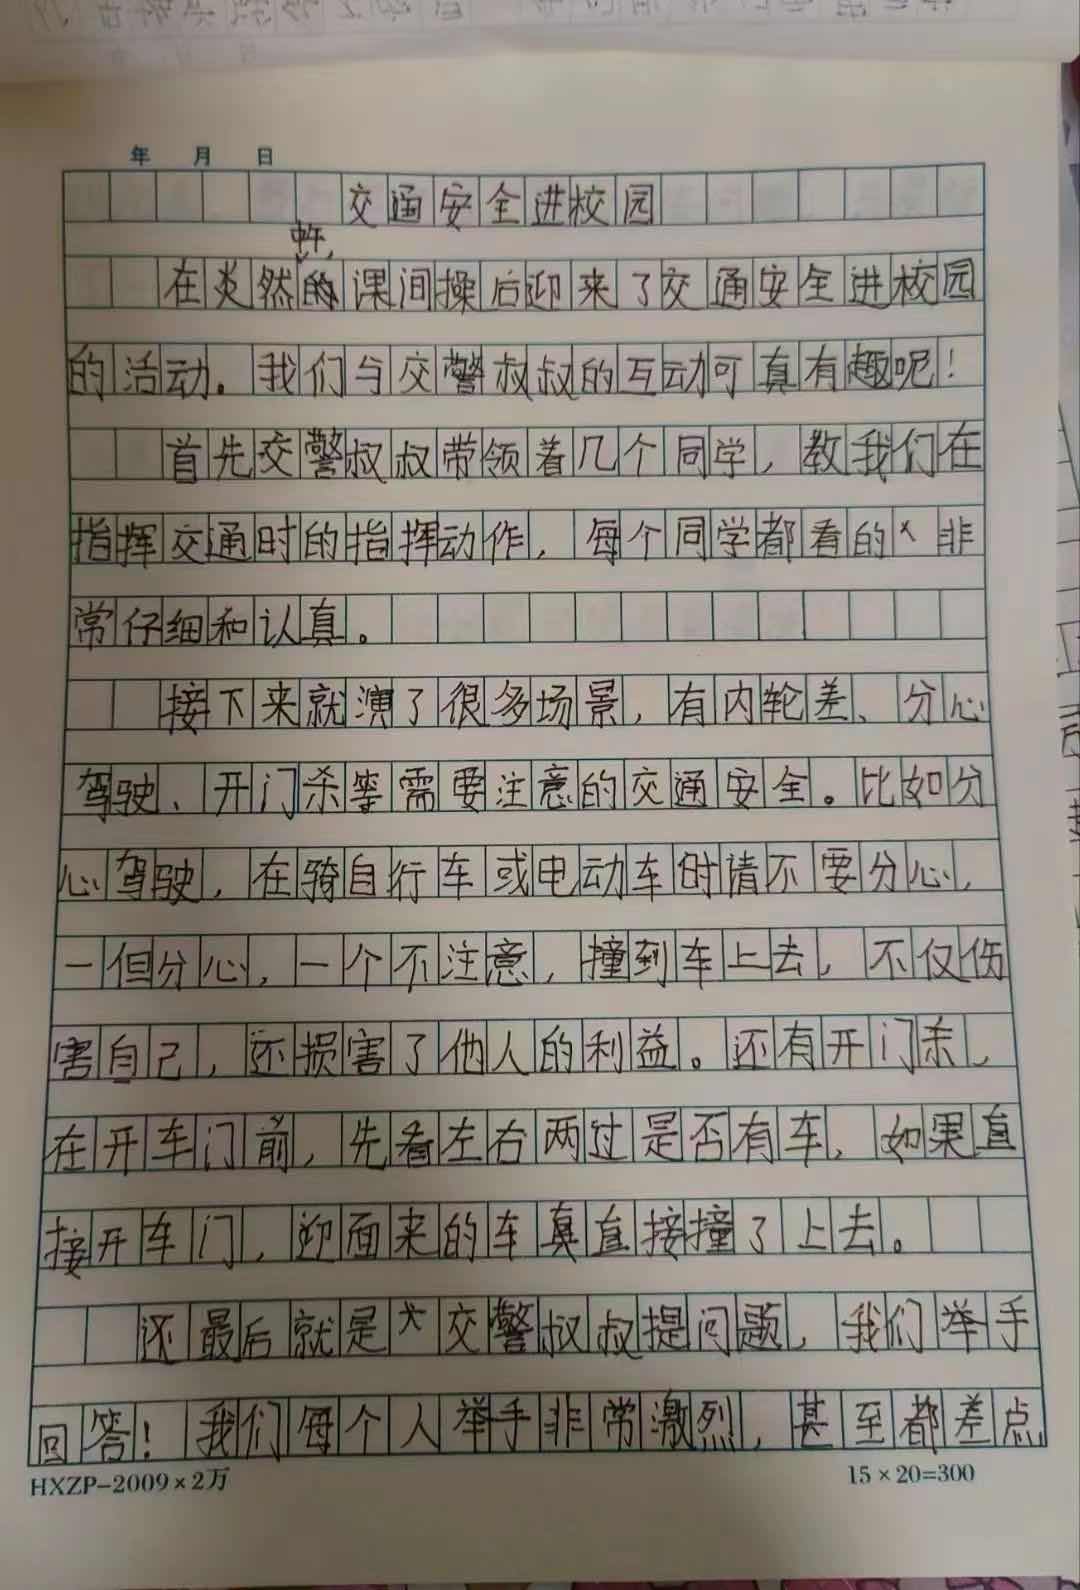 年 月 日
交通安全进校园
在炎然的课间操后迎来了交通安全进校园
的活动。我们与交警叔叔的互动可真有趣呢！
首先交警叔叔带领着几个同学，教我们在
指挥交通时的指挥动作，每个同学都看的非
常仔细和认真。
接下来就演了很多场景，有内轮差、分心
驾驶、开门杀等需要注意的交通安全。比如分
心驾驶，在骑自行车或电动车时请不要分心，
一但分心，一个不注意，撞到车上去，不仅伤
害自己，还损害了他人的利益。还有开门杀，
在开车门前，先看左右两过是否有车，如果直
接开车门，迎面来的车真直接撞了上去。
还最后就是交警叔叔提问题，我们举手
回答！我们每个人举手非常激烈，甚至都差点
HXZP-2009×2万
15×20=300